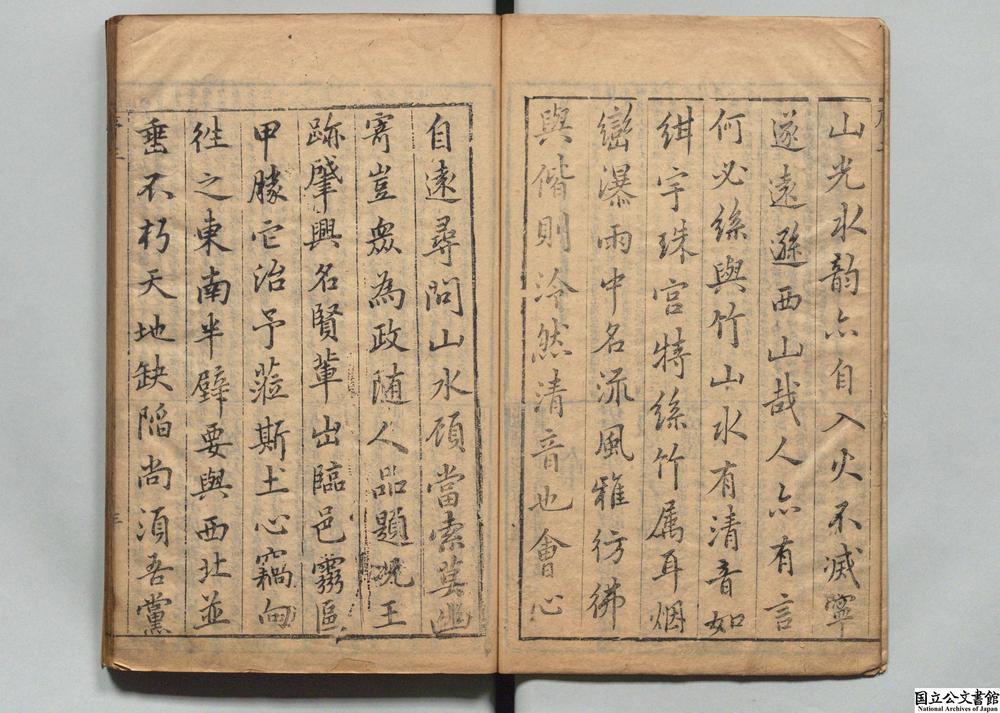 山光水韵亦自入火不滅寧
遂遠遜西山哉人亦有言
何必絲與竹山水有清音如
紺宇珠宮特絲竹属耳烟
巒瀑雨中名流風雅彷彿
與偕則泠然清音也會心
自遠尋問山水頎當索莫幽
寄豈盡為政随人品題況王
跡肇興名賢輩出臨邑霧區
甲勝它治予蒞斯土心竊向
往之東南半壁要與西北並
垂不朽天地缺陷尚湏吾黨
国立公文書館
National Archives of Japan